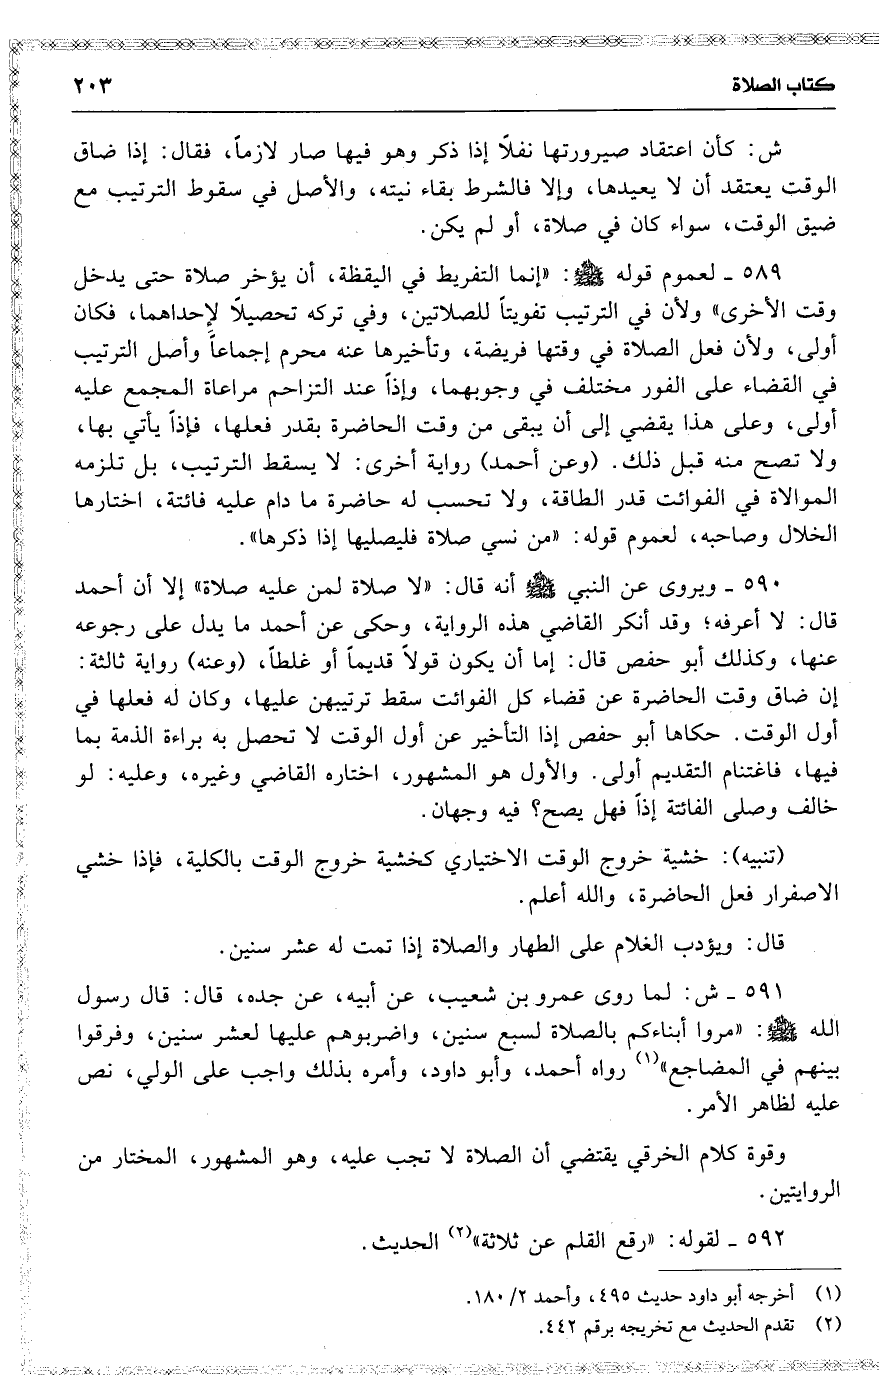 كتاب الصلاة ٢٠٣
ش: كأن اعتقاد صيرورتها نفلاً إذا ذكر وهو فيها صار لازماً، فقال: إذا ضاق
الوقت يعتقد أن لا يعيدها، وإلا فالشرط بقاء نيته، والأصل في سقوط الترتيب مع
ضيق الوقت، سواء كان في صلاة، أو لم يكن.
٥٨٩ ـ لعموم قوله ﷺ: «إنما التفريط في اليقظة، أن يؤخر صلاة حتى يدخل
وقت الأخرى» ولأن في الترتيب تفويتاً للصلاتين، وفي تركه تحصيلاً لإحداهما، فكان
أولى، ولأن فعل الصلاة في وقتها فريضة، وتأخيرها عنه محرم إجماعاً وأصل الترتيب
في القضاء على الفور مختلف في وجوبهما، وإذاً عند التزاحم مراعاة المجمع عليه
أولى، وعلى هذا يقضي إلى أن يبقى من وقت الحاضرة بقدر فعلها، فإذاً يأتي بها،
ولا تصح منه قبل ذلك. (وعن أحمد) رواية أخرى: لا يسقط الترتيب، بل تلزمه
الموالاة في الفوائت قدر الطاقة، ولا تحسب له حاضرة ما دام عليه فائتة، اختارها
الخلال وصاحبه، لعموم قوله: «من نسي صلاة فليصليها إذا ذكرها».
٥٩٠ ـ ويروى عن النبي ﷺ أنه قال: «لا صلاة لمن عليه صلاة» إلا أن أحمد
قال: لا أعرفه؛ وقد أنكر القاضي هذه الرواية، وحكى عن أحمد ما يدل على رجوعه
عنها، وكذلك أبو حفص قال: إما أن يكون قولاً قديماً أو غلطاً، (وعنه) رواية ثالثة:
إن ضاق وقت الحاضرة عن قضاء كل الفوائت سقط ترتيبهن عليها، وكان له فعلها في
أول الوقت. حكاها أبو حفص إذا التأخير عن أول الوقت لا تحصل به براءة الذمة بما
فيها، فاغتنام التقديم أولى. والأول هو المشهور، اختاره القاضي وغيره، وعليه: لو
خالف وصلى الفائتة إذاً فهل يصح؟ فيه وجهان.
(تنبيه): خشية خروج الوقت الاختياري كخشية خروج الوقت بالكلية، فإذا خشي
الاصفرار فعل الحاضرة، والله أعلم.
قال: ويؤدب الغلام على الطهار والصلاة إذا تمت له عشر سنين.
٥٩١ ـ ش: لما روى عمرو بن شعيب، عن أبيه، عن جده، قال: قال رسول
الله ﷺ: «مروا أبناءكم بالصلاة لسبع سنين، واضربوهم عليها لعشر سنين، وفرقوا
بينهم في المضاجع»(١) رواه أحمد، وأبو داود، وأمره بذلك واجب على الولي، نص
عليه لظاهر الأمر.
وقوة كلام الخرقي يقتضي أن الصلاة لا تجب عليه، وهو المشهور، المختار من
الروايتين.
٥٩٢ ـ لقوله: «رفع القلم عن ثلاثة»(٢) الحديث.
(١) أخرجه أبو داود حديث ٤٩٥، وأحمد ٢/ ١٨٠.
(٢) تقدم الحديث مع تخريجه برقم ٤٤٢.